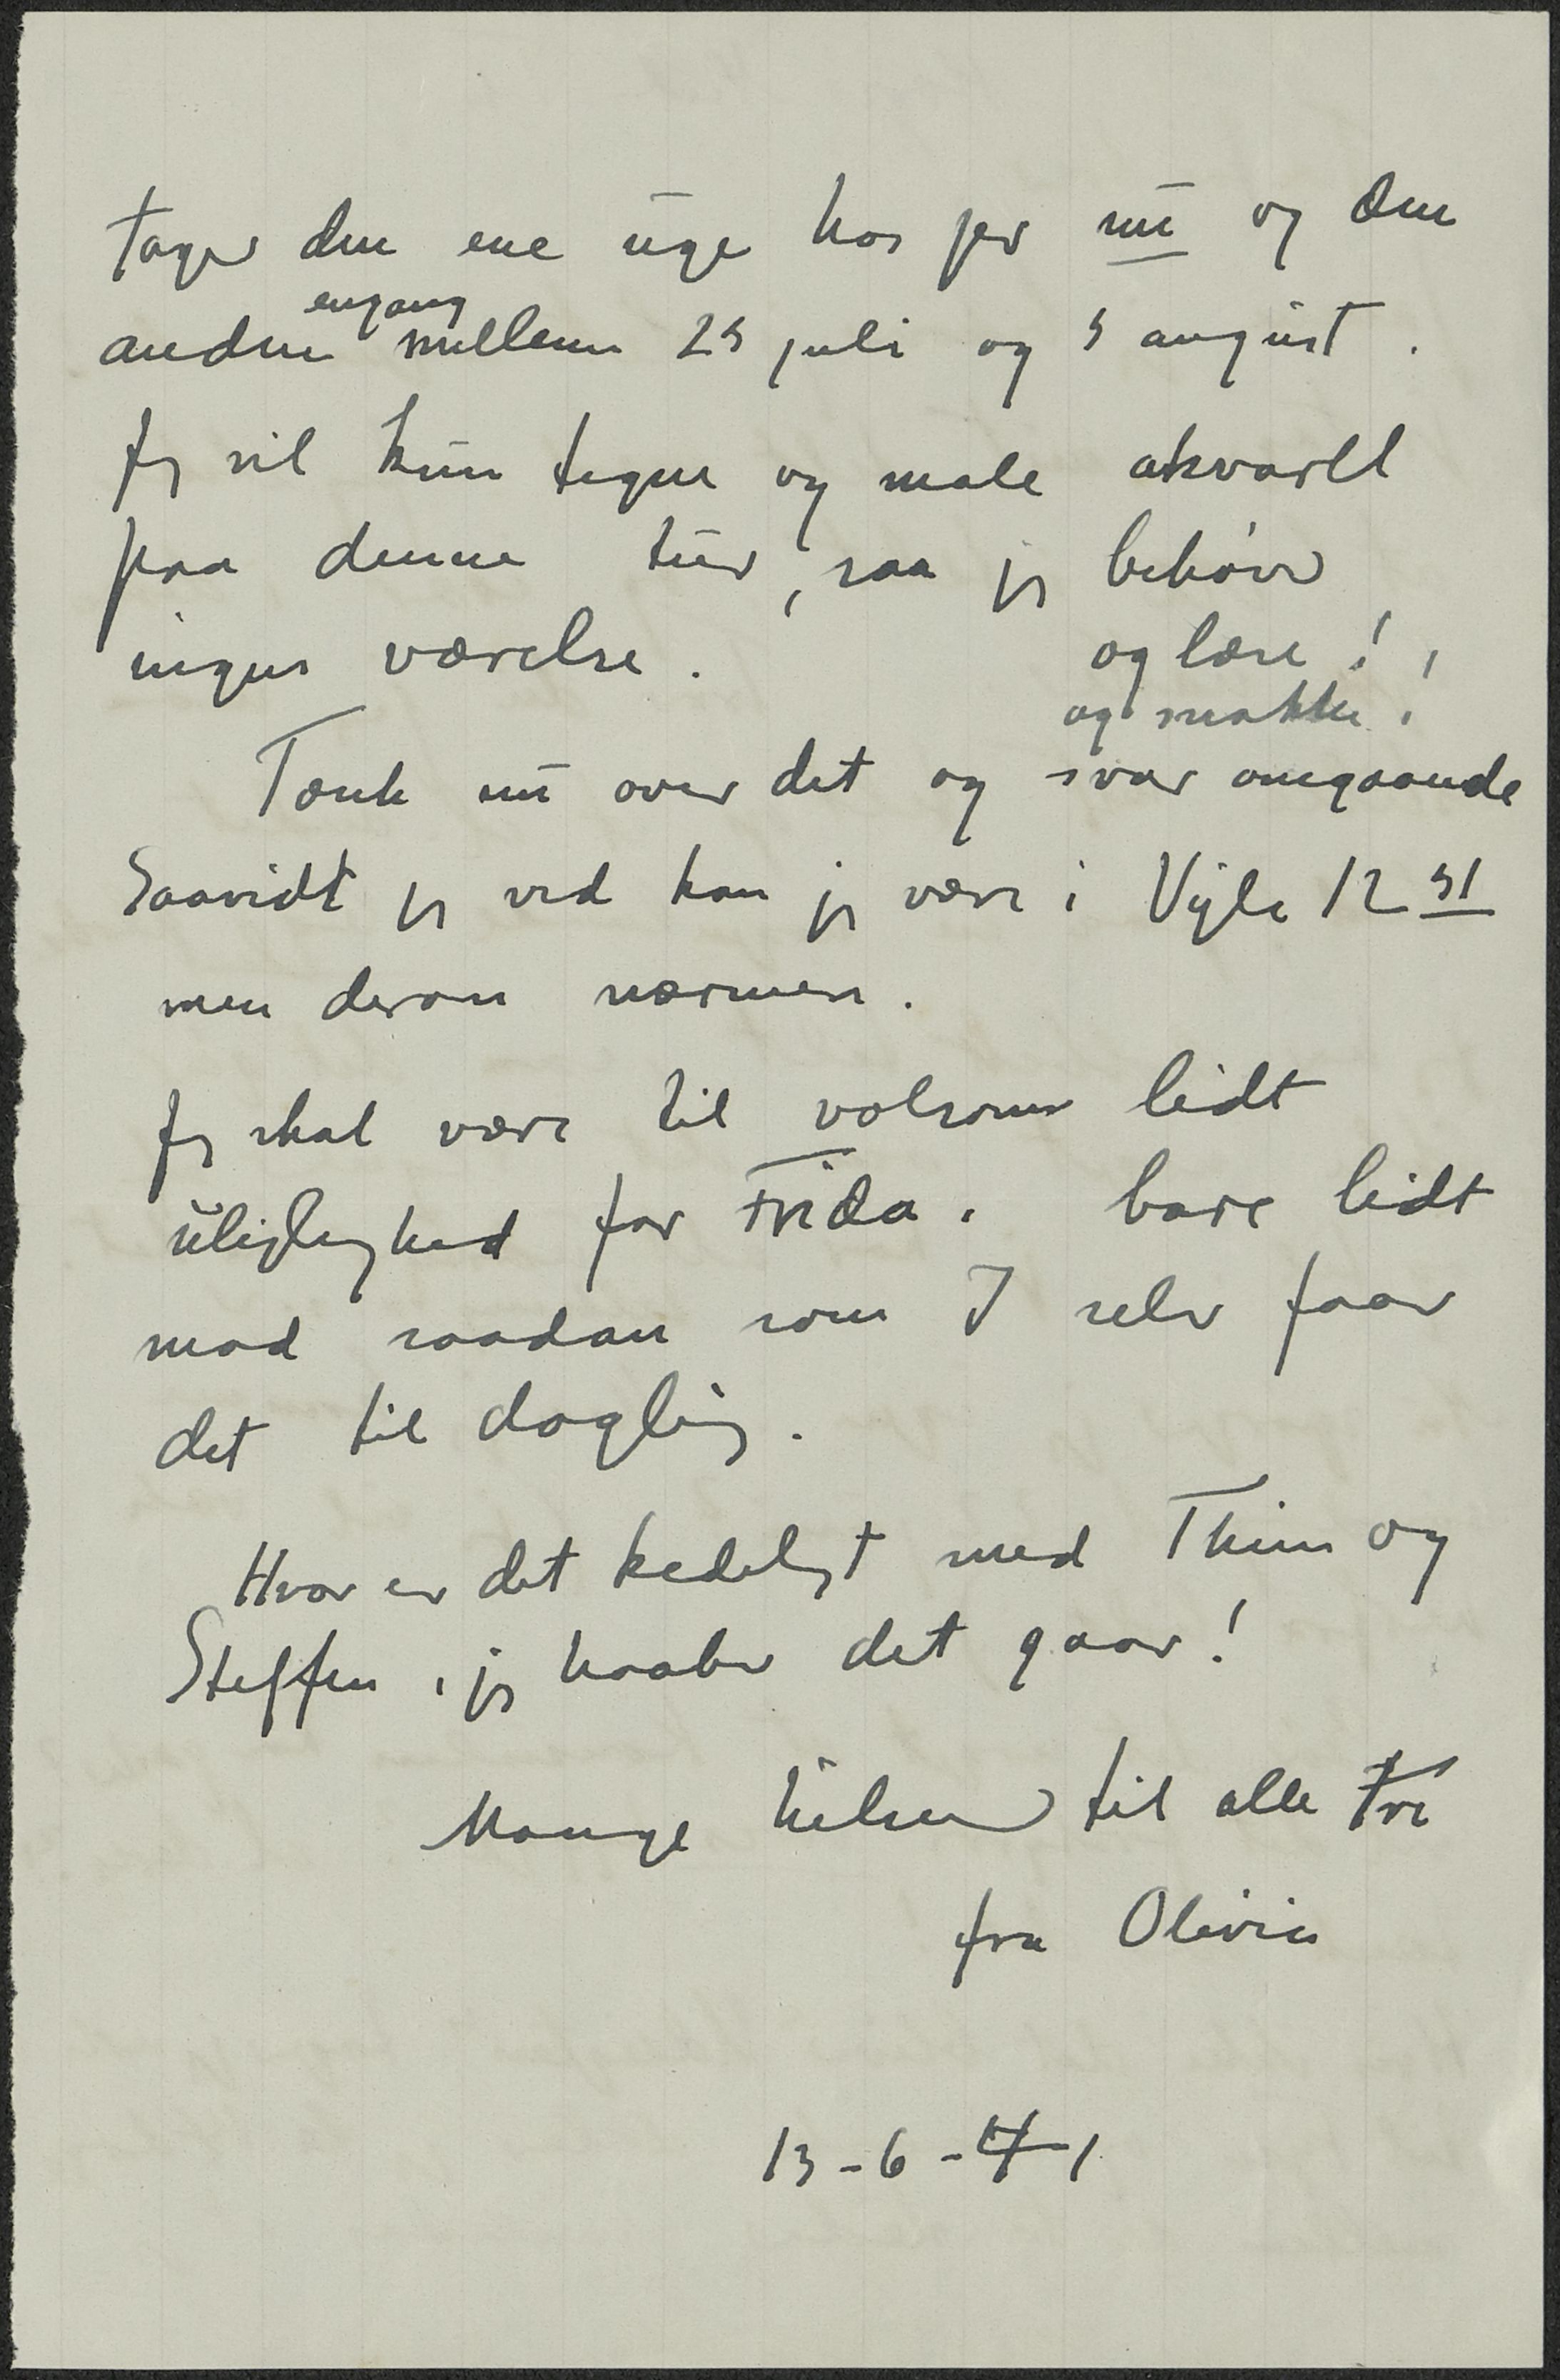 tager den ene uge hos jer nu og den
engang
anden mellem 25 juli og 5 august.
Jeg vil kun tegne og male akvarel
paa denne tur, saa jeg behøver
ingen værelse.
og læse!
og snakke!
Tænk nu over det og svar omgaaende
Saavidt jeg ved kan jeg være i Vejle 12 51
men derom nærmere.
Jeg skal være til volsom lidt
ulejlighed for Frida. bare lidt
mad saadan som I selv faar
det til daglig.
Hvor er det kedeligt med Thim og
Steffen, jeg haaber det gaar!
Mange hilsner til alle Tre
fra Olivia
13-6-41